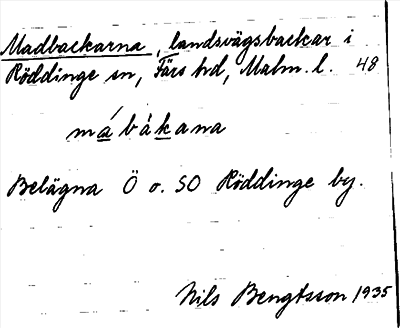 Madbackarna, landsvägsbackar i
Röddinge sn, Färs hd, Malm. l. 48
mábákana
Belägna Ö o. SO Röddinge by.
Nils Bengtsson 1935